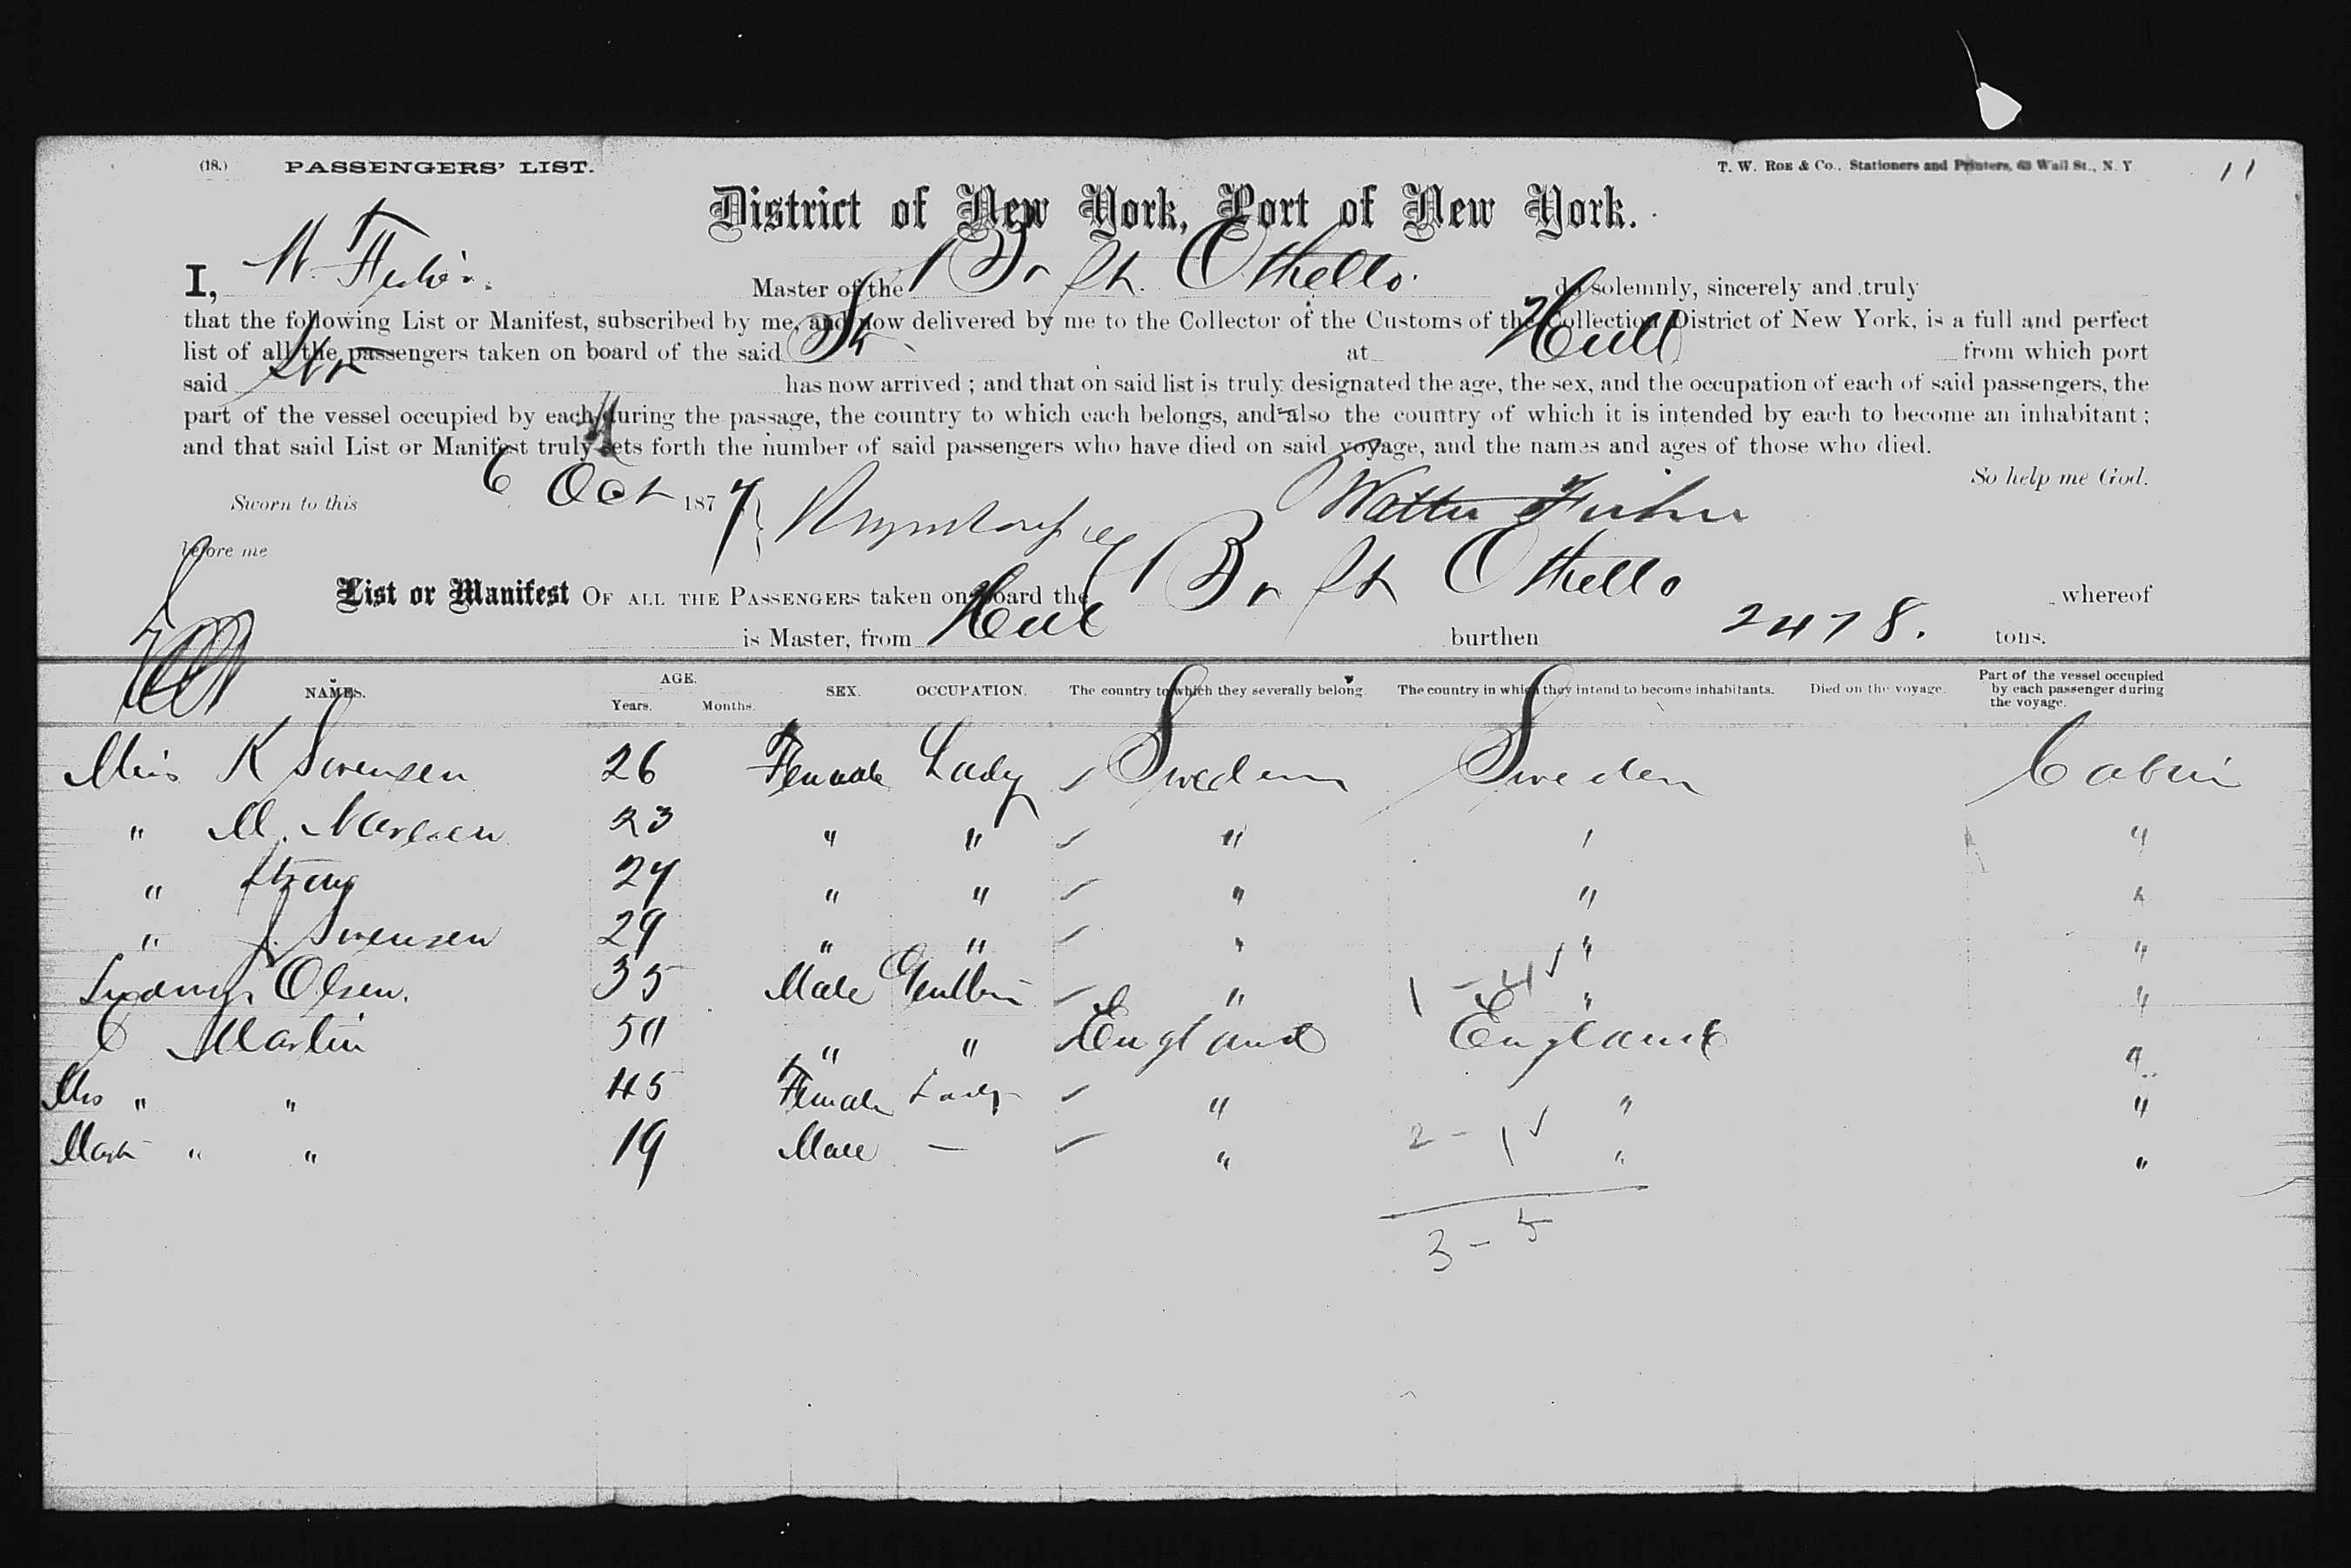 (18.) PASSENGERS' LIST. T. W. ROE & Co., Stationers and Printers, 63 Wall St., N. Y 11
District of New York, Port of New York.
I, W. Master of the Br St. Othello do solemnly, sincerely and truly
that the following List or Manifest, subscribed by me, and now delivered by me to the Collector of the Customs of the Collection District of New York, is a full and perfect
list of all the passengers taken on board of the said Str at Hull from which port
said Str has now arrived ; and that on said list is truly designated the age, the sex, and the occupation of each of said passengers, the
part of the vessel occupied by each during the passage, the country to which each belongs, and also the country of which it is intended by each to become an inhabitant ;
and that said List or Manifest truly sets forth the number of said passengers who have died on said voyage, and the names and ages of those who died.
So help me God.
Sworn to this 6 Oct 1877
before me
List or Manifest OF ALL THE PASSENGERS taken on board the Br St Othello whereof
is Master, from Hull burthen 2478. tons.
NAMES. AGE. Years. Months. SEX. OCCUPATION. The country to which they severally belong. The country in which they intend to become inhabitants. Died on the voyage. Part of the vessel occupied by each passenger during the voyage.
Miss K Swensen 26 Female Lady Sweden Sweden Cabin
" M. 23 " " " " "
" 24 " " " " "
" J. Swensen 29 " " " " "
Olsen. 35 Male " 1 - 4 " "
C Martin 50 " " England England "
Mrs " " 45 Female Lady " " "
Mast " " 19 Male — " 2 - 1 " "
3 - 5